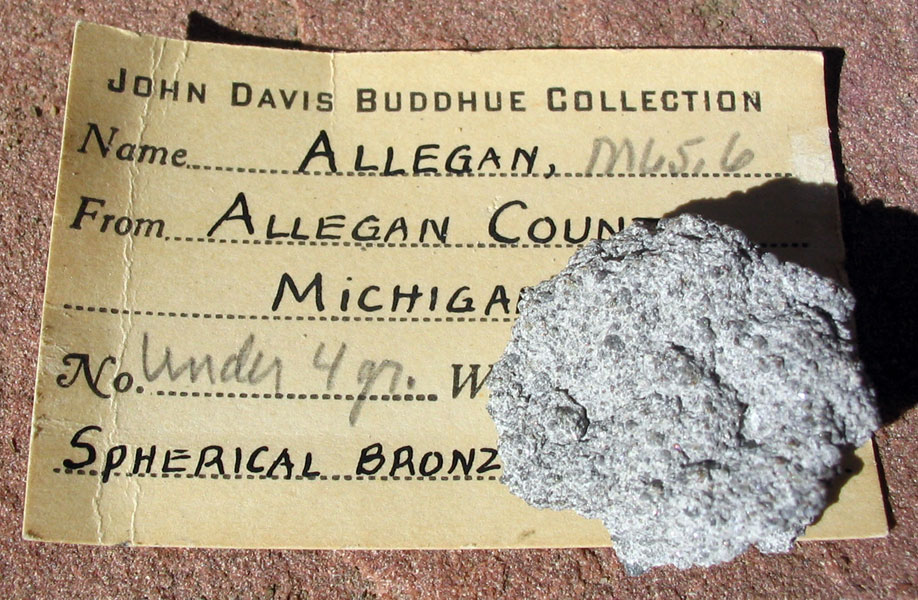 JOHN DAVIS BUDDHUE COLLECTION
Name ALLEGAN, M65.6
From ALLEGAN COUN
MICHIGA
No. Under 4 gr. W
SPHERICAL BRONZ